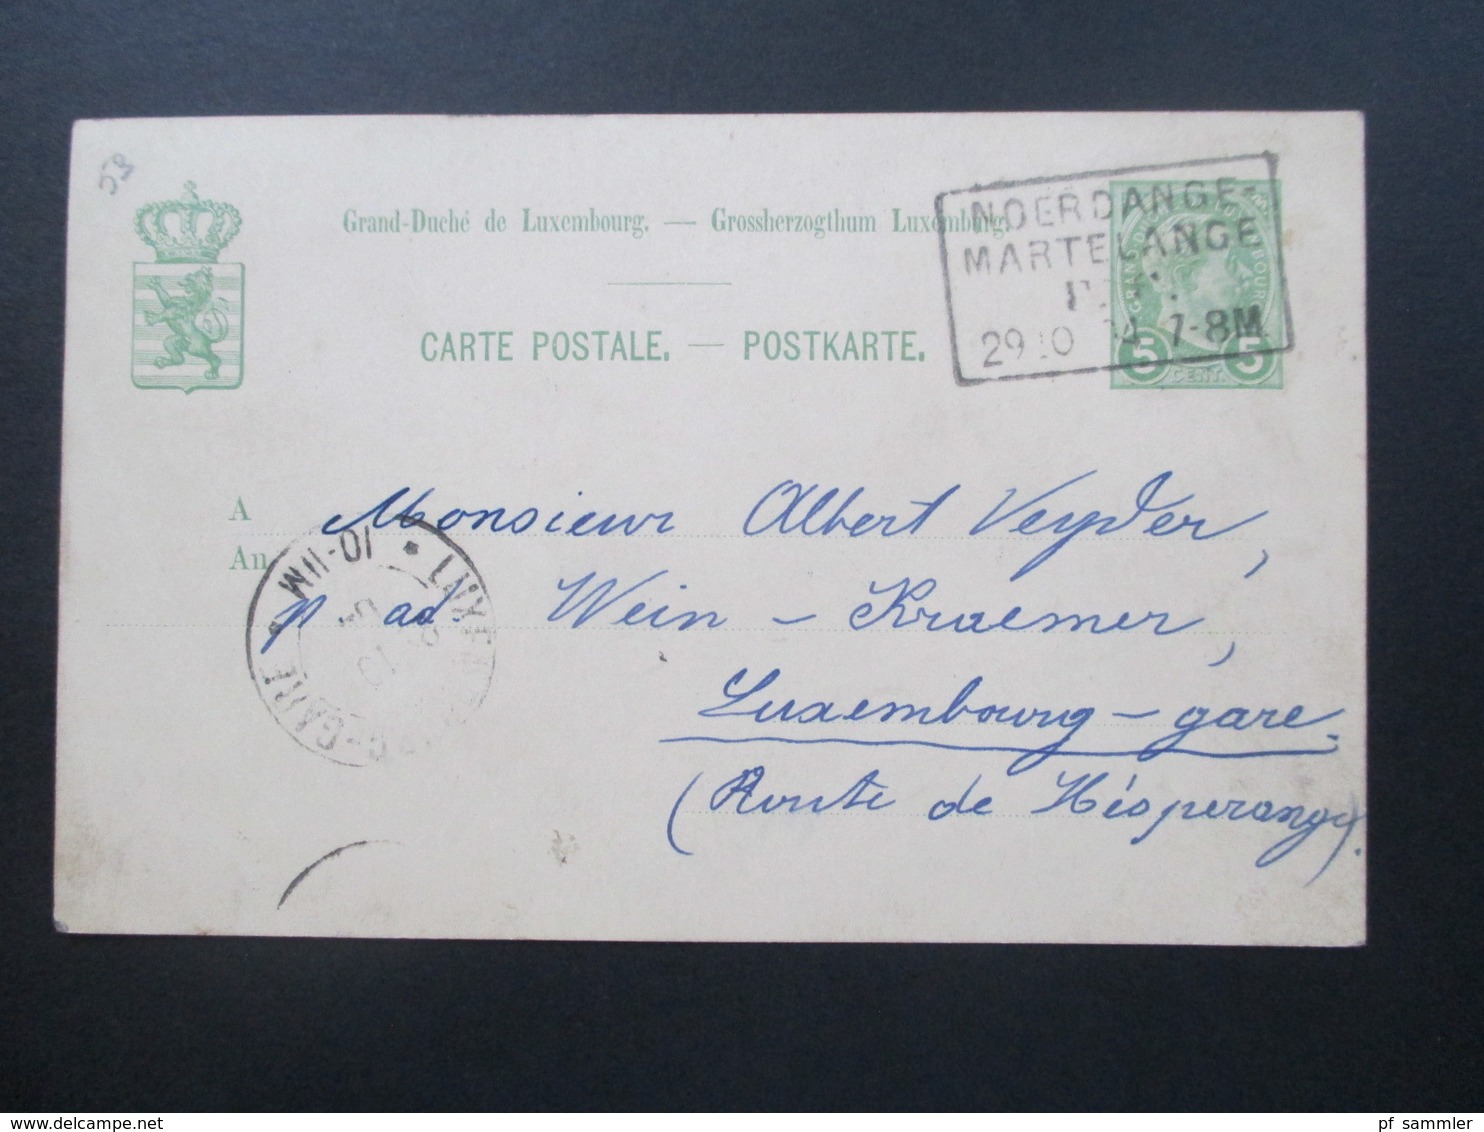 53
Grand-Duché de Luxembourg. — Grossherzogthum Luxemburg.
CARTE POSTALE. — POSTKARTE.
NOERDANGE-
MARTELANGE
29 10 04 7-8M
GRAND DUCHÉ DE LUXEMBOURG
5 CENT. 5
A Monsieur Albert Veyder,
An p ad. Wein-Kraemer,
Luxembourg-gare.
(Route de Hésperange).
LUXEMBOURG-GARE
10-11M
pf_sammler